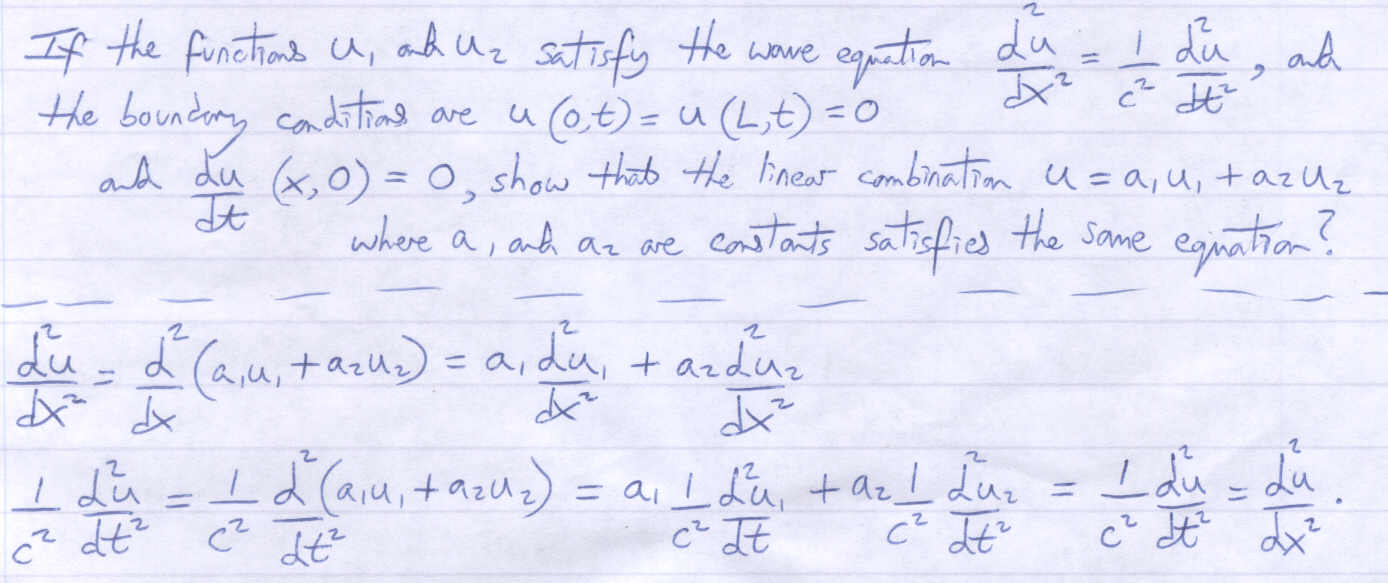 If the functions u₁ and u₂ satisfy the wave equation d²u/dx² = 1/c² d²u/dt², and
the boundary conditions are u(0,t) = u(L,t) = 0
and du/dt (x,0) = 0, show that the linear combination u = a₁u₁ + a₂u₂
where a₁ and a₂ are constants satisfies the same equation?
d²u/dx² = d²/dx (a₁u₁ + a₂u₂) = a₁ d²u₁/dx² + a₂ d²u₂/dx²
1/c² d²u/dt² = 1/c² d²/dt² (a₁u₁ + a₂u₂) = a₁ 1/c² d²u₁/dt + a₂ 1/c² d²u₂/dt² = 1/c² d²u/dt² = d²u/dx².